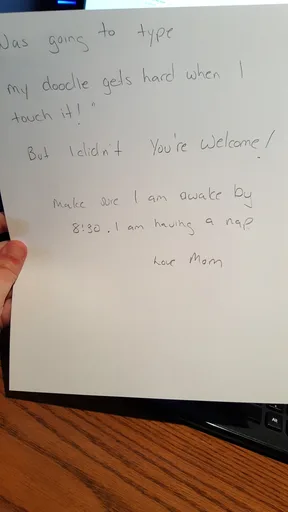 Was going to type
my doodle gets hard when I
touch it!"
But I didn't You're Welcome!
Make sure I am awake by
8:30. I am having a nap
Love Mom